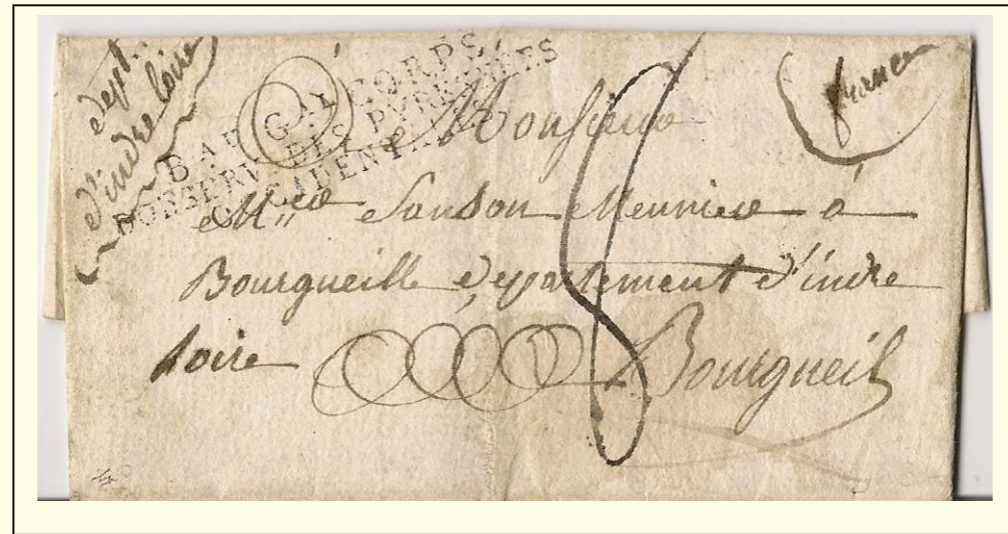 dept.
d'indre loire
BAU GAL CORPS
D'OBSERV. DES PYRENEES
OCCIDENTALES
france
Monsieur
Sanson Meunier à
Bourgueille departement d'indre
loire
Bourgueil
8